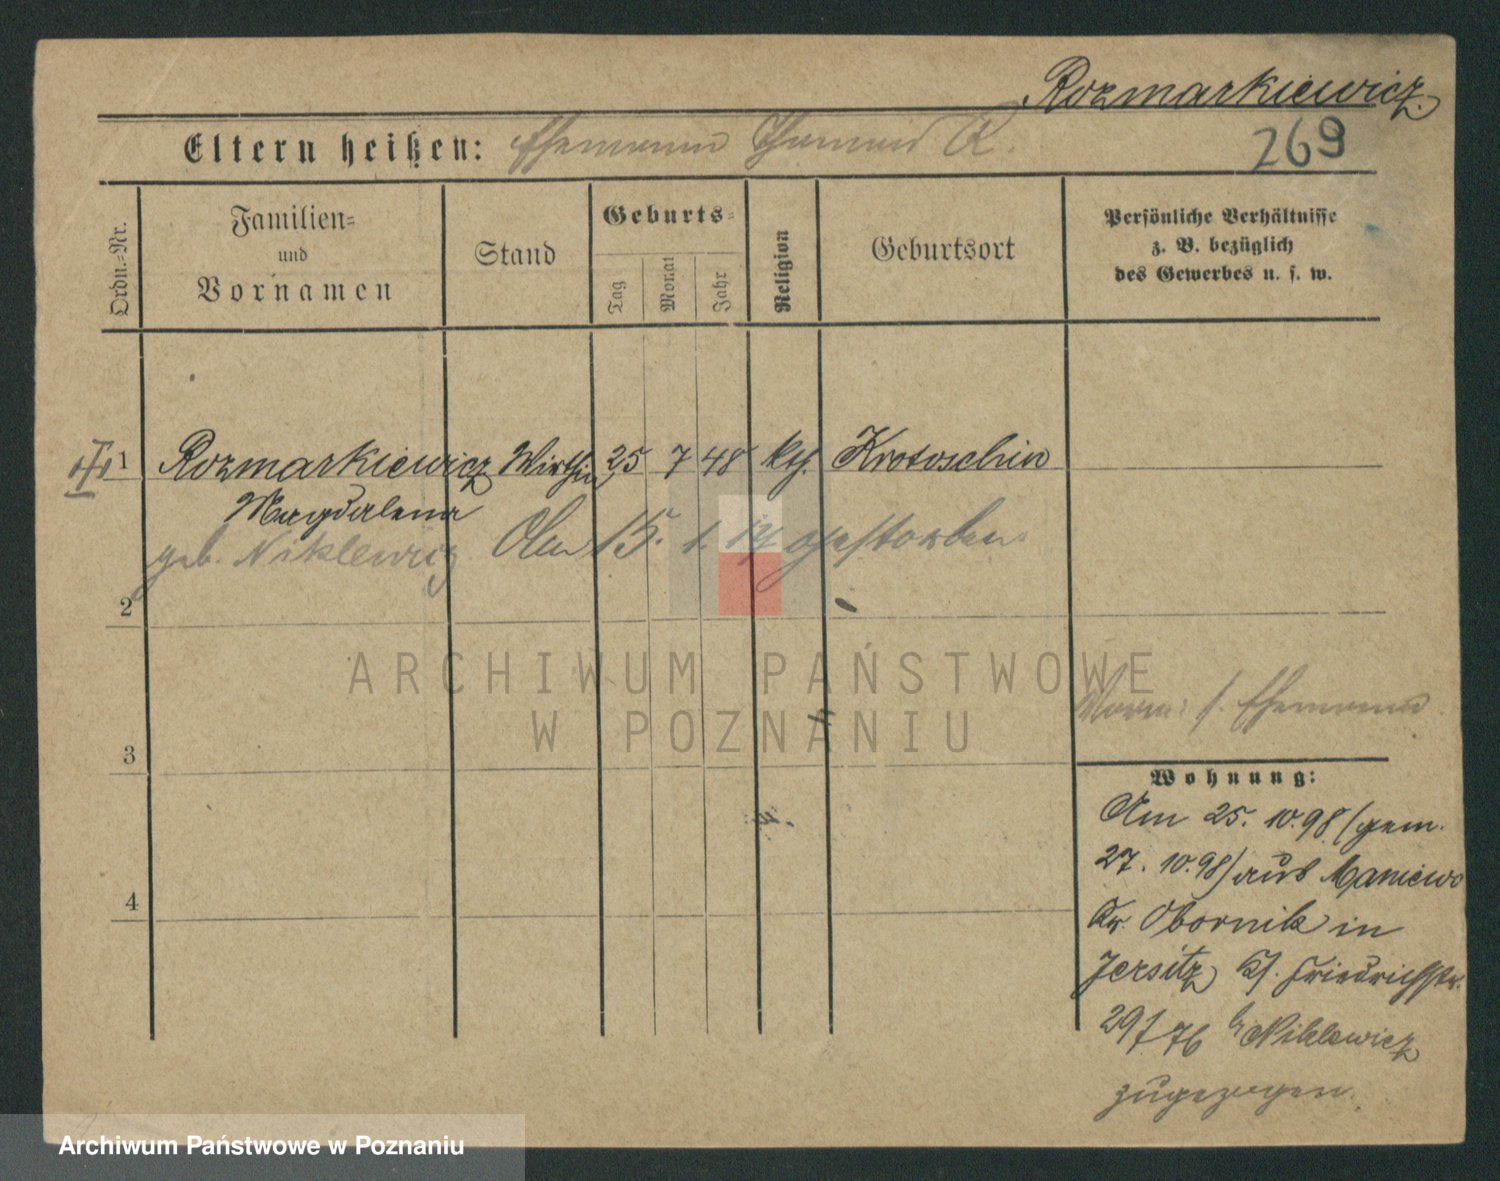 Rozmarkiewicz.
269
Eltern heißen: Ehemann Thomas R.
Ordn.=Nr.
Familien=
und
Vornamen
Stand
Geburts=
Tag
Monat
Jahr
Religion
Geburtsort
Persönliche Verhältnisse
z. B. bezüglich
des Gewerbes u. s. w.
1 Rozmarkiewicz Wirthin 25 7 48 kth. Krotoschin
Magdalena
geb. Niklewicz
15. 1. gestorben
2
ARCHIWUM PAŃSTWOWE
W POZNANIU
s. Ehemann
3
Wohnung:
Am 25. 10. 98 (gem.
27. 10. 98) aus Maniewo
Kr. Obornik in
Jersitz Kf. Friedrichstr.
29 b Niklewicz
zugezogen.
4
Archiwum Państwowe w Poznaniu